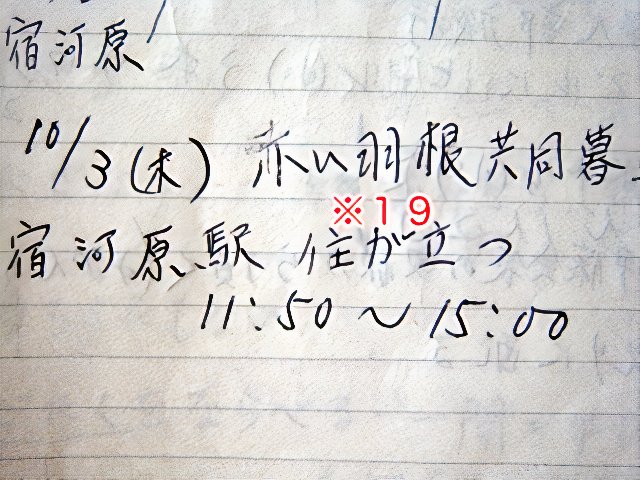 宿河原
10/3(木) 赤い羽根共同暮
※19
宿河原駅 住が立つ
11:50～15:00